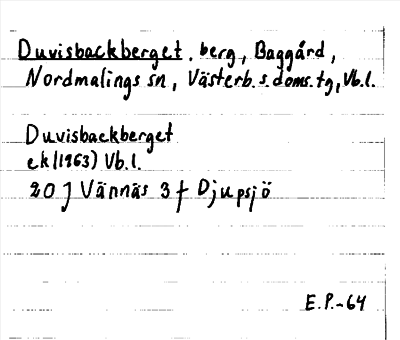 Duvisbackberget, berg, Baggård,
Nordmalings sn, Västerb.s.doms.tg, Vb.l.
Duvisbackberget
ek (1963) Vb.l.
20 J Vännäs 3 f Djupsjö
E.P.-64